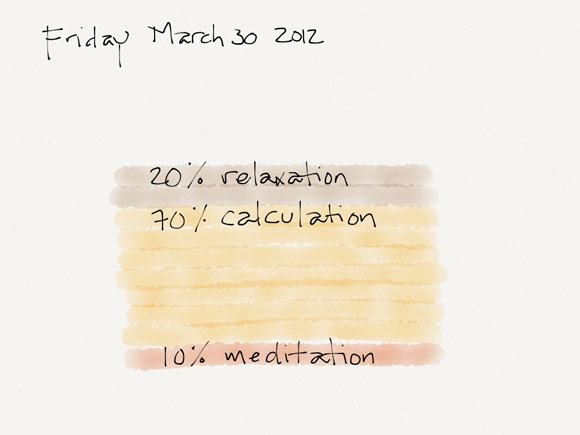 Friday March 30 2012
20% relaxation
70% calculation
10% meditation